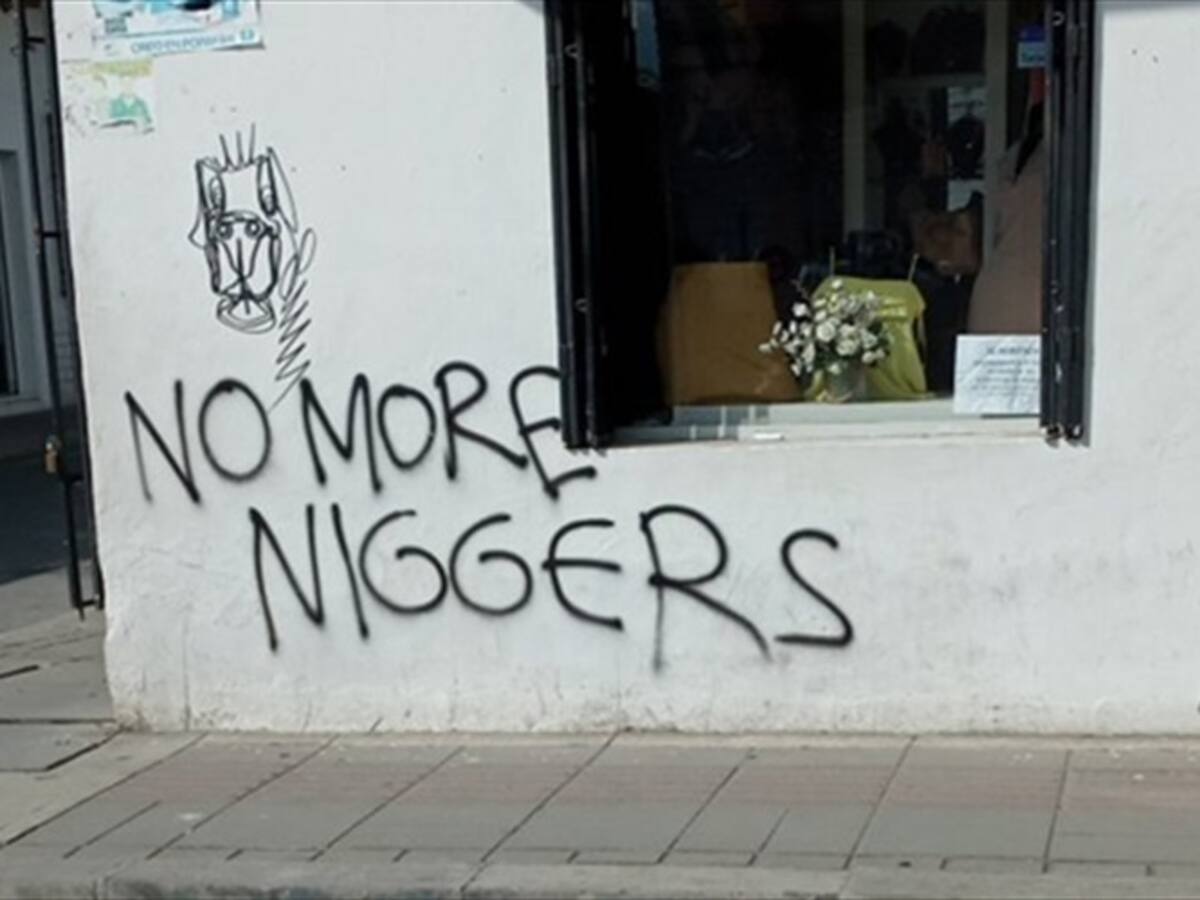 NO MORE
NIGGERS